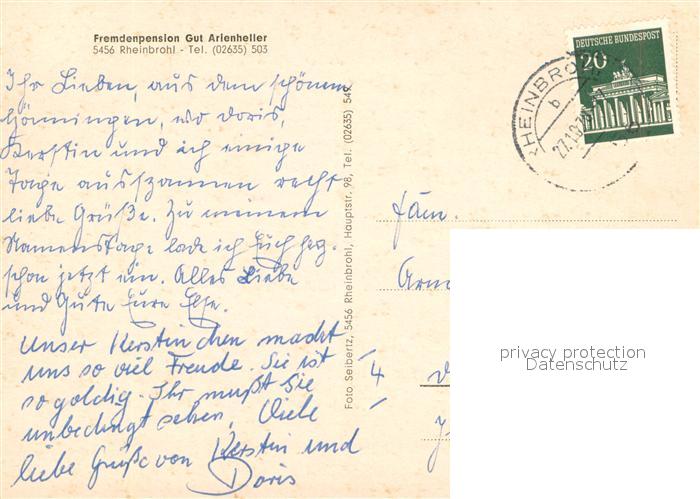 Fremdenpension Gut Arienheller
5456 Rheinbrohl - Tel. (02635) 503
Ihr Lieben, aus dem schönen
Hönningen, wo Doris,
Kerstin und ich einige
Tage ausspannen recht
liebe Grüße. Zu meinem
Namenstage lade ich Euch herz.
schon jetzt ein. Alles Liebe
und Gute Eure Else.
Unser Kerstinchen macht
uns so viel Freude. Sie ist
so goldig. Ihr mußt Sie
unbedingt sehen. Viele
liebe Grüße von Kerstin und
Doris
Foto Seibertz, 5456 Rheinbrohl, Hauptstr. 98, Tel. (02635) 549
DEUTSCHE BUNDESPOST
20
RHEINBROHL
b
Fam.
4
privacy protection
Datenschutz